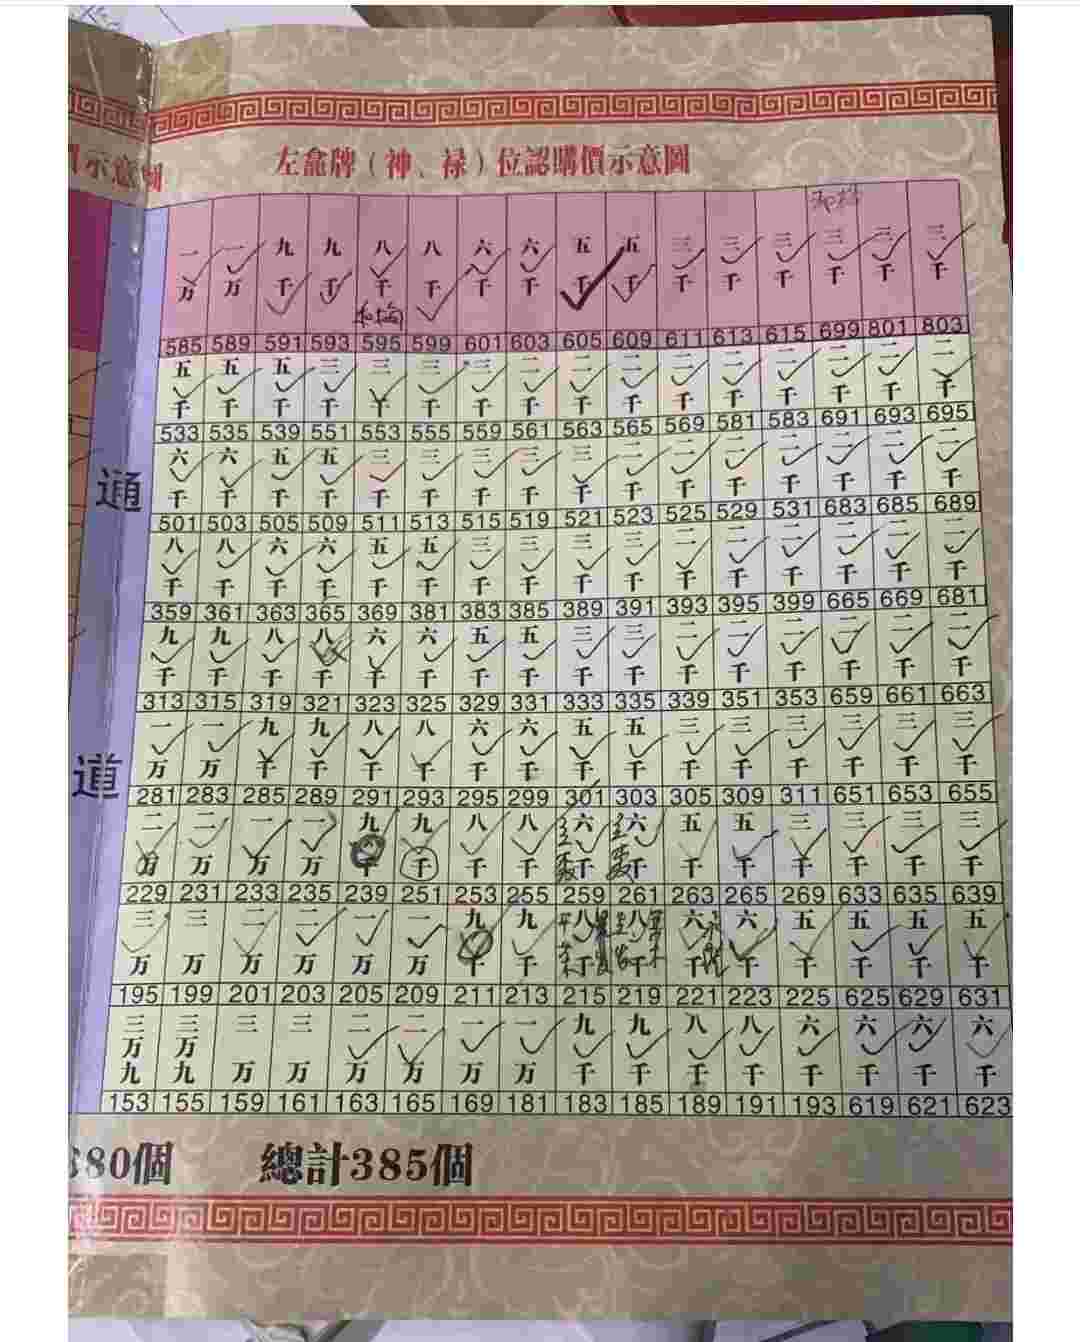 示意圖
左龕牌（神、禄）位認購價示意圖
一万 一万 九千 九千 八千 八千 六千 六千 五千 五千 三千 三千 三千 三千 三千 三千
585 589 591 593 595 599 601 603 605 609 611 613 615 699 801 803
五千 五千 五千 三千 三千 三千 三千 二千 二千 二千 二千 二千 二千 二千 二千 二千
533 535 539 551 553 555 559 561 563 565 569 581 583 691 693 695
六千 六千 五千 五千 三千 三千 三千 三千 三千 二千 二千 二千 二千 二千 二千 二千
501 503 505 509 511 513 515 519 521 523 525 529 531 683 685 689
八千 八千 六千 六千 五千 五千 三千 三千 三千 三千 二千 二千 二千 二千 二千 二千
359 361 363 365 369 381 383 385 389 391 393 395 399 665 669 681
九千 九千 八千 八千 六千 六千 五千 五千 三千 三千 二千 二千 二千 二千 二千 二千
313 315 319 321 323 325 329 331 333 335 339 351 353 659 661 663
一万 一万 九千 九千 八千 八千 六千 六千 五千 五千 三千 三千 三千 三千 三千 三千
281 283 285 289 291 293 295 299 301 303 305 309 311 651 653 655
二万 二万 一万 一万 九千 九千 八千 八千 六千 六千 五千 五千 三千 三千 三千 三千
229 231 233 235 239 251 253 255 259 261 263 265 269 633 635 639
三万 三万 二万 二万 一万 一万 九千 九千 八千 八千 六千 六千 五千 五千 五千 五千
195 199 201 203 205 209 211 213 215 219 221 223 225 625 629 631
三万九 三万九 三万 三万 二万 二万 一万 一万 九千 九千 八千 八千 六千 六千 六千 六千
153 155 159 161 163 165 169 181 183 185 189 191 193 619 621 623
通道
380個 總計385個